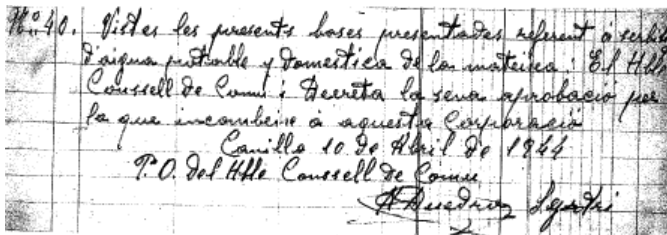 Nº 40. Vistes les presents bases presentades referent a serbici
d'aigua potrable y domestica de la mateixa: El Hble
Conssell de Comu: Decreta la seva aprobacio per
lo que incombeix a aquesta Corporacio
Canillo 10 de Abril de 1944
P.O. del Hble Conssell de Comu